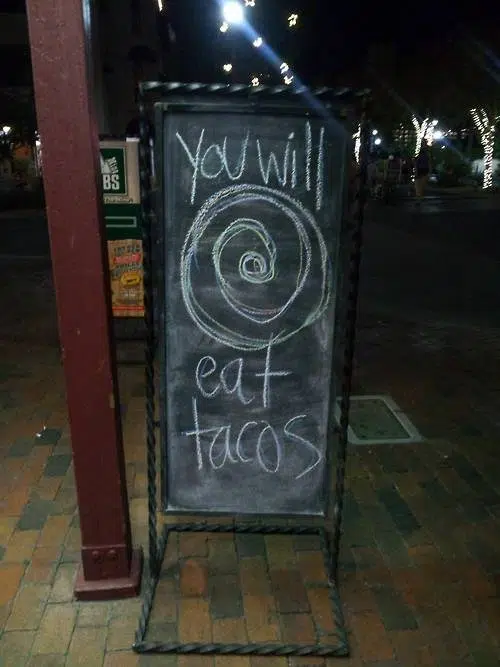 You will
eat
tacos
BS